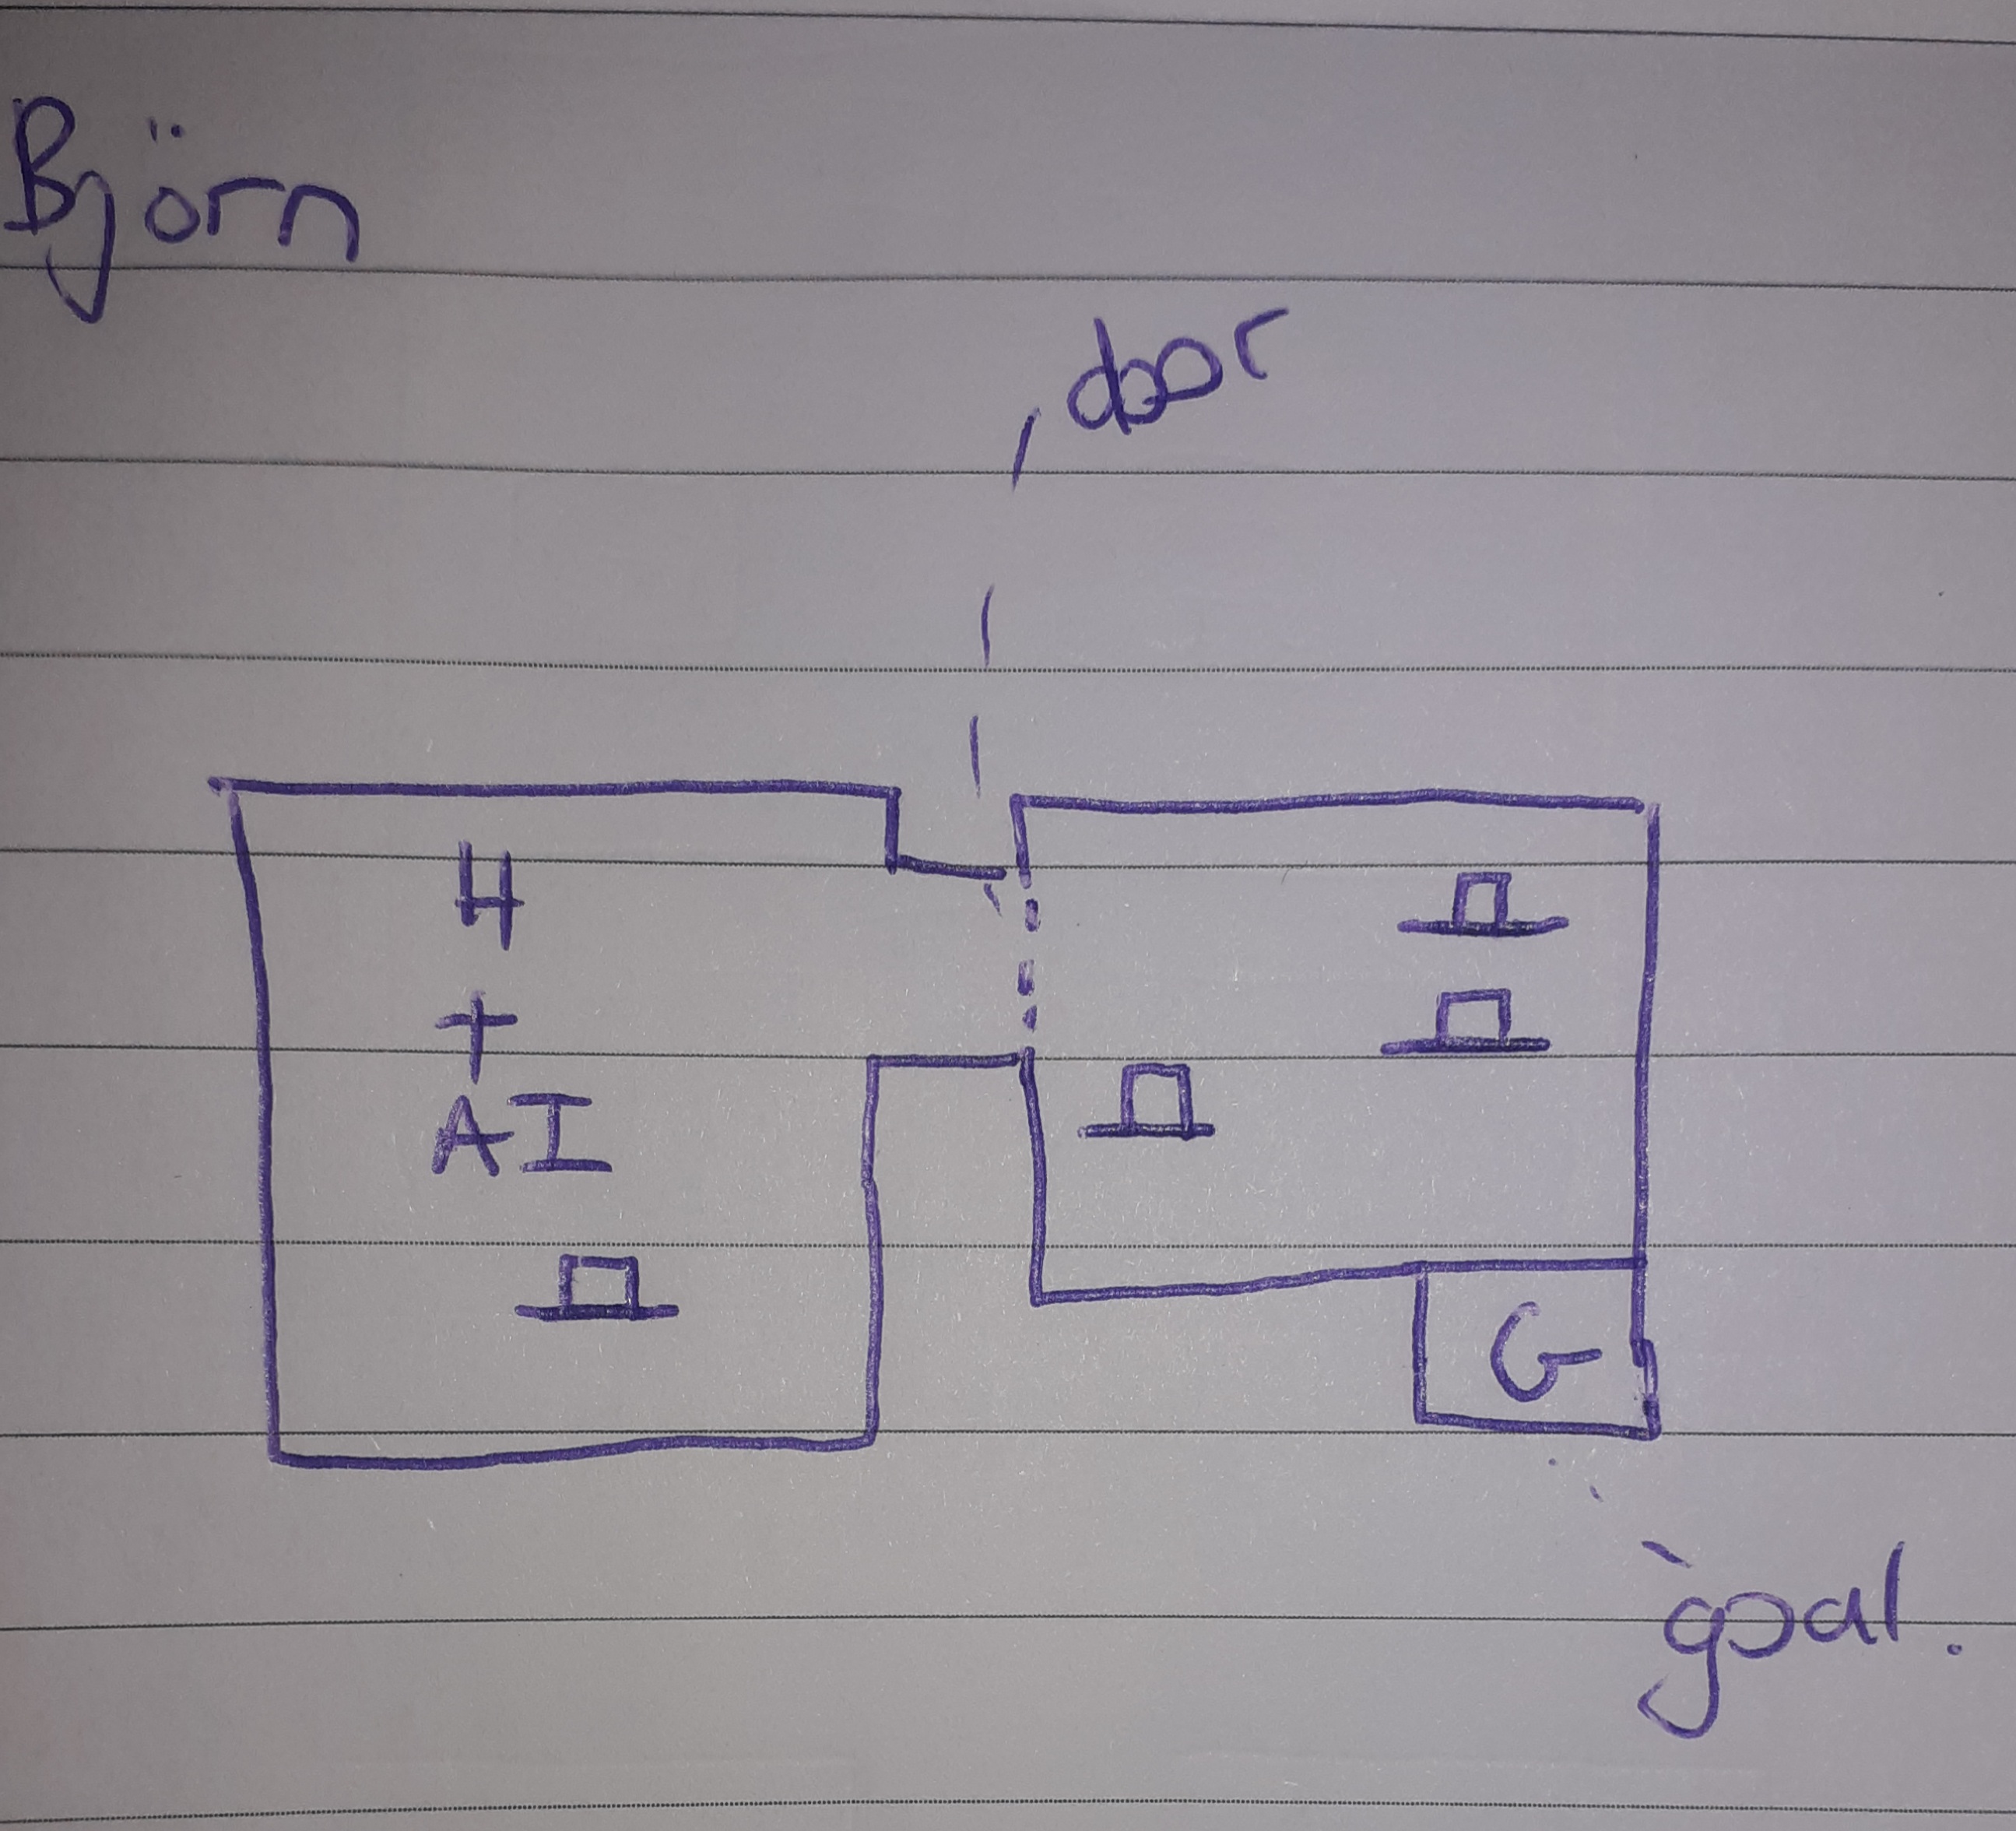 Björn
door
H
+
AI
G
goal.